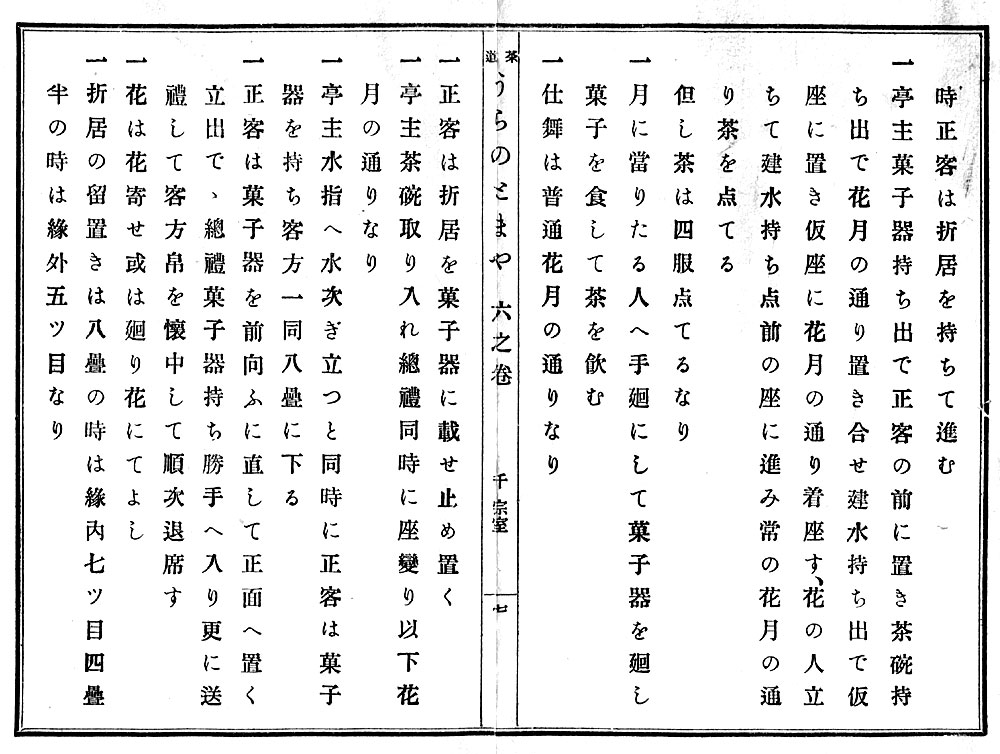 時正客は折居を持ちて進む
一亭主菓子器持ち出で正客の前に置き茶碗持
ち出で花月の通り置き合せ建水持ち出で仮
座に置き仮座に花月の通り着座す、花の人立
ちて建水持ち点前の座に進み常の花月の通
り茶を点てる
但し茶は四服点てるなり
一月に當りたる人へ手廻にして菓子器を廻し
菓子を食して茶を飲む
一仕舞は普通花月の通りなり
茶道うらのとまや 六之卷 千宗室 七
一正客は折居を菓子器に載せ止め置く
一亭主茶碗取り入れ總禮同時に座變り以下花
月の通りなり
一亭主水指へ水次ぎ立つと同時に正客は菓子
器を持ち客方一同八疊に下る
一正客は菓子器を前向ふに直して正面へ置く
立出でヽ總禮菓子器持ち勝手へ入り更に送
禮して客方帛を懷中して順次退席す
一花は花寄せ或は廻り花にてよし
一折居の留置きは八疊の時は緣內七ツ目四疊
半の時は緣外五ツ目なり